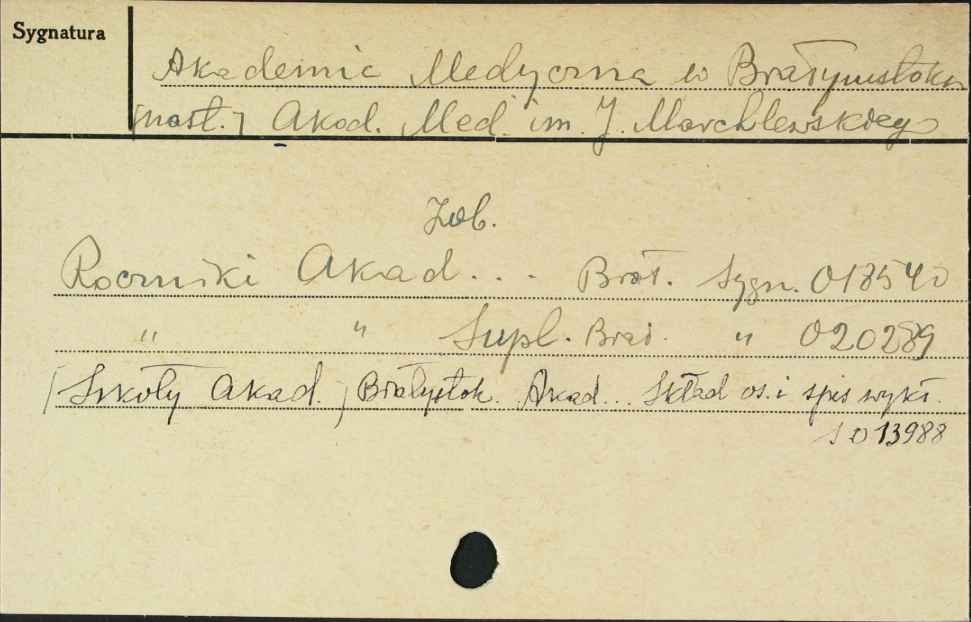 Sygnatura
Akademia Medyczna w Białymstoku
[nast.] Akad. Med. im. J. Marchlewskiego
Zob.
Roczniki Akad... Biał. Sygn. 018540
" " Supl. Biał. " 020289
[Szkoły Akad.] Białystok. Akad... Skład os. i spis wykł.
013988